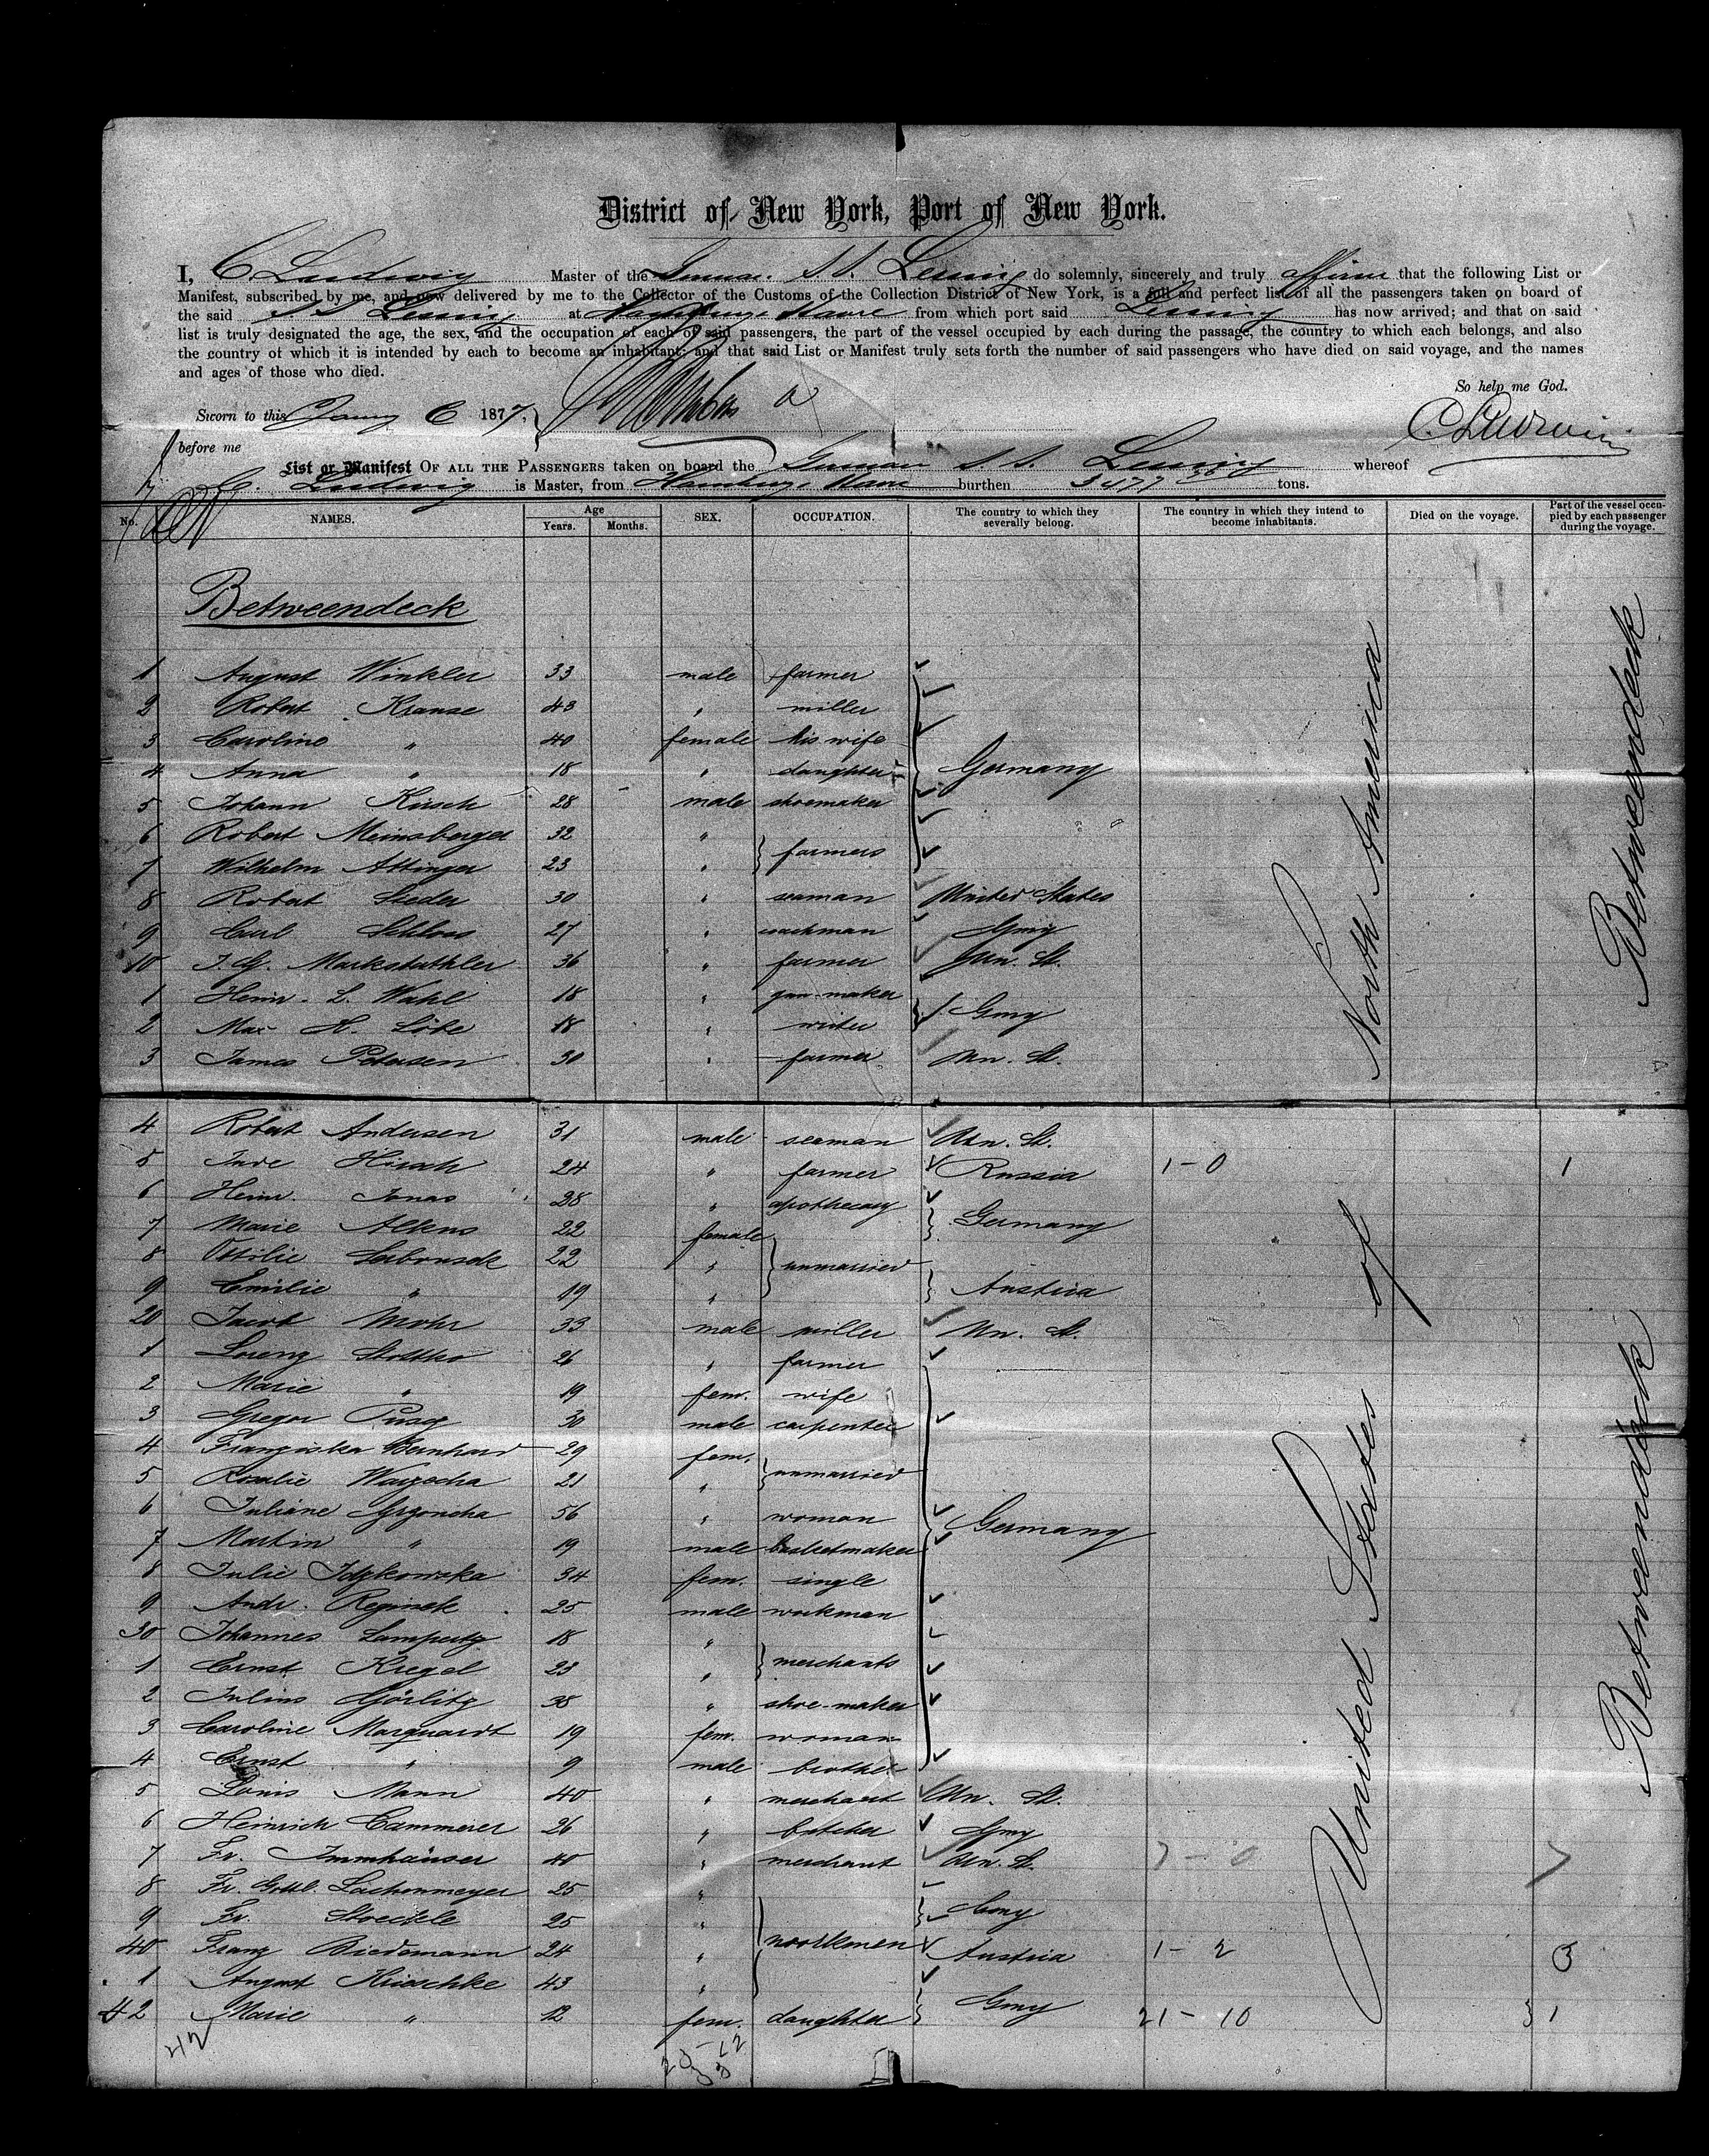 District of New York, Port of New York.
I, C. Ludwig Master of the German S.S. Lessing do solemnly, sincerely and truly affirm that the following List or
Manifest, subscribed by me, and now delivered by me to the Collector of the Customs of the Collection District of New York, is a full and perfect list of all the passengers taken on board of
the said S.S. Lessing at Hamburg & Havre from which port said Lessing has now arrived; and that on said
list is truly designated the age, the sex, and the occupation of each of said passengers, the part of the vessel occupied by each during the passage, the country to which each belongs, and also
the country of which it is intended by each to become an inhabitant; and that said List or Manifest truly sets forth the number of said passengers who have died on said voyage, and the names
and ages of those who died.
So help me God.
Sworn to this Jany 6 1877,
before me
C. Ludwig
List or Manifest OF ALL THE PASSENGERS taken on board the German S.S. Lessing whereof
C. Ludwig is Master, from Hamburg & Havre burthen 3477 tons.
No. NAMES. Age Years. Months. SEX. OCCUPATION. The country to which they severally belong. The country in which they intend to become inhabitants. Died on the voyage. Part of the vessel occupied by each passenger during the voyage.
Betweendeck
1 August Winkler 33 male farmer
2 Robert Krause 43 " miller
3 Caroline " 40 female his wife
4 Anna " 18 " daughter Germany
5 Johann Kirsch 28 male shoemaker
6 Robert Meinsberger 32 "
7 Wilhelm Attinger 23 " farmers
8 Robert Sieder 30 " seaman United States
9 Carl Schloss 27 " coachman Gmy
10 J. G. Markstathler 36 " farmer Un. St.
1 Heinr. L. Wahl 18 " gun-maker
2 Max H. Löbe 18 " writer Gmy
3 James Petersen 30 " farmer Un. St.
4 Robert Andersen 31 male seaman Un. St.
5 Hirsch 24 " farmer Russia 1-0 1
6 Heinr. Jonas 28 " apothecary
7 Marie Alkens 22 female Germany
8 Ottilie 22 " unmarried
9 Emilie " 19 " Austria
20 Jacob Mohr 33 male miller Un. St.
1 Lorenz Stottko 26 " farmer
2 Marie " 19 fem. wife
3 Gregor 30 male carpenter
4 Franziska Bernhard 29 fem.
5 Rosalie Warzecha 21 " unmarried
6 Juliane 56 " woman Germany
7 Martin " 19 male basketmaker
8 Julie 34 fem. single
9 Andr. Reginek 25 male workman
30 Johannes Lampertz 18 "
1 Ernst Kregel 23 " merchants
2 Julius Görlitz 38 " shoe-maker
3 Caroline Marquardt 19 fem. woman
4 Ernst " 9 male brother
5 Louis Mann 40 " merchant Un. St.
6 Heinrich Cammerer 26 " butcher Gmy
7 Fr. Immhäuser 40 " merchant Un. St. 7-0 7
8 Fr. Gottl. Lachenmeyer 25 "
9 Fr. Stoeckle 25 " Gmy
40 Franz Biedemann 24 " workmen Austria 1-2 3
1 August Hirschke 43 "
42 Marie " 12 fem. daughter Gmy 21-10 1
42
United States of North America
Betweendeck
Betweendeck